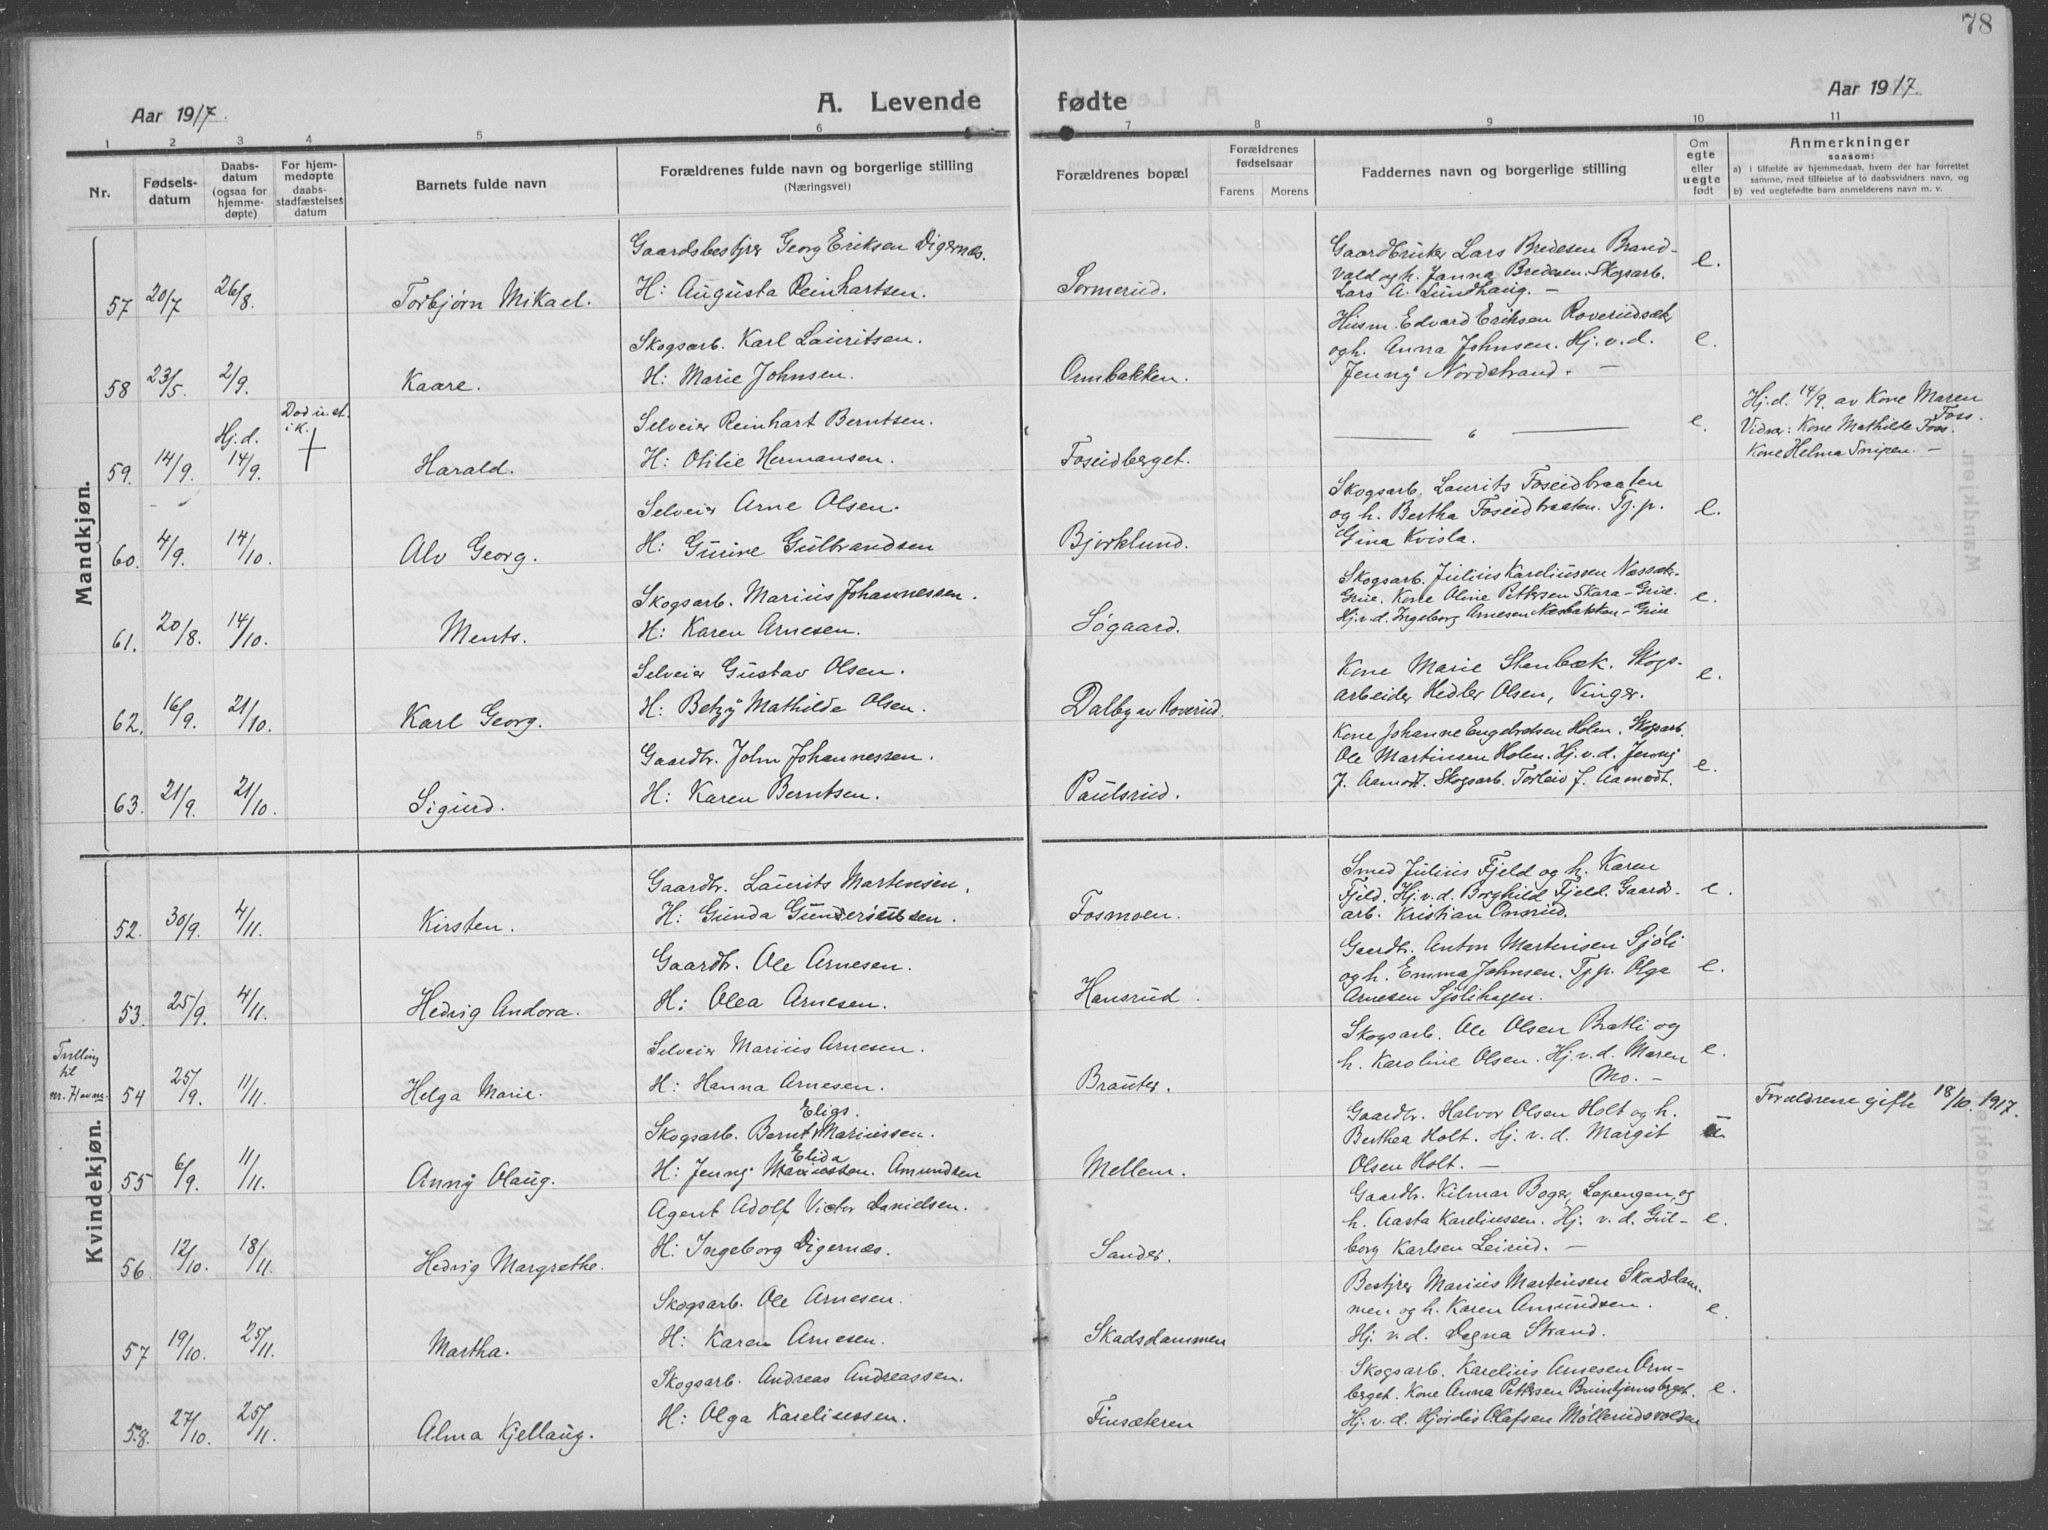 78
Aar 1917.
A. Levende
fødte
Aar 1917.
1 2 3 4 5 6 7 8 9 10 11
Nr.
Fødsels-
datum
Daabs-
datum
(ogsaa for
hjemme-
døpte)
For hjem-
medøpte
daabs-
stadfæstelses
datum
Barnets fulde navn
Forældrenes fulde navn og borgerlige stilling
(Næringsvei)
Forældrenes bopæl
Forældrenes
fødselsaar
Farens Morens
Faddernes navn og borgerlige stilling
Om
egte
eller
uegte
født
Anmerkninger
saasom:
a) i tilfælde av hjemmedaab, hvem der har forrettet
samme, med tilføielse af to daabsvidners navn, og
b) ved uegtefødte barn anmelderens navn m. v.
Mandkjøn.
57 20/7 26/8. Torbjørn Mikael.
Gaardsbestyrer Georg Eriksen Digernæs.
H: Augusta Reinhartsen.
Sormerud.
Gaardbruker Lars Bredesen Brand-
vald og h. Janna Bredesen. Skogsarb.
Lars A. Lundhaug. —
e.
58 23/5. 2/9. Kaare.
Skogsarb. Karl Lauritsen.
H: Marie Johnsen.
Ormbakken.
Husm. Edvard Eriksen Roverudsæt
og h. Anna Johnsen. Hj. v. d.
Jenny Nordstrand. —
e.
59. 14/9. Hj. d. 14/9.
Død u. et.
i k.
Harald.
Selveier Reinhart Berntsen.
H: Otilie Hermansen.
Foseidberget.
e.
Hj. d. 14/9. av Kone Maren
Foss
Vidner: Kone Mathilde Foss.
Kone Helma Snipen. —
60. 4/9. 14/10. Alv Georg.
Selveier Arne Olsen.
H: Gurine Gulbrandsen
Bjorklund.
Skogsarb. Laurits Foseidbraaten
og h. Bertha Foseidbraaten. Tj. p.
Gina Kvisla.
e.
61. 20/8. 14/10. Ments.
Skogsarb. Marius Johannessen.
H: Karen Arnesen.
Søgaard.
Skogsarb. Julius Kareliussen Næssæt-
Grue. Kone Oline Pettersen Skara-Grue.
Hj. v. d. Ingeborg Arnesen Næsbakken-Grue
e.
62. 16/9. 21/10. Karl Georg.
Selveier Gustav Olsen.
H: Betzy Mathilde Olsen.
Dalby av Roverud.
Kone Marie Stenbæk. Skogs-
arbeider Hedler Olsen, Vinger.
e.
63. 21/9. 21/10. Sigurd.
Gaardbr. John Johannessen.
H: Karen Berntsen.
Paulsrud.
Kone Johanne Engebretsen Holen. Skogsarb.
Ole Martinsen Holen. Hj. v. d. Jenny
J. Aamodt. Skogsarb. Torleiv J. Aamodt.
e.
Kvindekjøn.
52. 30/9. 4/11. Kirsten.
Gaardbr. Laurits Martinsen.
H: Gunda Gundersen.
Fosmoen.
Smed Julius Fjeld og h. Karen
Fjeld. Hj. v. d. Borghild Fjeld. Gaards-
arb. Kristian Onsrud.
e.
53. 25/9. 4/11. Hedvig Andora.
Gaardbr. Ole Arnesen.
H: Olea Arnesen.
Hansrud.
Gaardbr. Anton Martinsen Sjøli
og h. Emma Johnsen. Tj. p. Olga
Arnesen Sjølihagen.
e.
Tvilling
til
54 25/9. 11/11. Helga Marie.
Selveier Marius Arnesen.
H: Hanna Arnesen.
Brauter.
Skogsarb. Ole Olsen Bratli og
h. Karoline Olsen. Hj. v. d. Maren
Mo. —
e.
55 6/9. 11/11. Anny Olaug.
Eligs.
Skogsarb. Bernt Mariussen.
Elida
H: Jenny Mariussen. Amundsen
Mellem.
Gaardbr. Halvor Olsen Holt og h.
Berthea Holt. Hj. v. d. Margit
Olsen Holt. —
Forældrene gifte 18/10. 1917.
56. 12/10. 18/11. Hedvig Margrethe.
Agent Adolf Victor Danielsen.
H: Ingeborg Digernæs.
Sander.
Gaardbr. Vilmar Boger, Lepengen, og
h. Aasta Kareliussen. Hj. v. d. Gul-
borg Karlsen Leirud. —
e.
57 19/10. 25/11. Martha.
Skogsarb. Ole Arnesen.
H: Karen Arnesen.
Skadsdammen
Bestyrer Marius Martinsen Skadsdam-
men og h. Karen Amundsen.
Hj. v. d. Dagna Strand.
e.
58. 27/10. 25/11. Alma Kjellaug.
Skogsarb. Andreas Andreassen.
H: Olga Kareliussen.
Finsætren
Skogsarb. Karelius Arnesen Orm-
berget. Kone Anna Pettersen Bruntjernsberget.
Hj. v. d. Hjørdis Olafsen Møllerudsvolden
e.